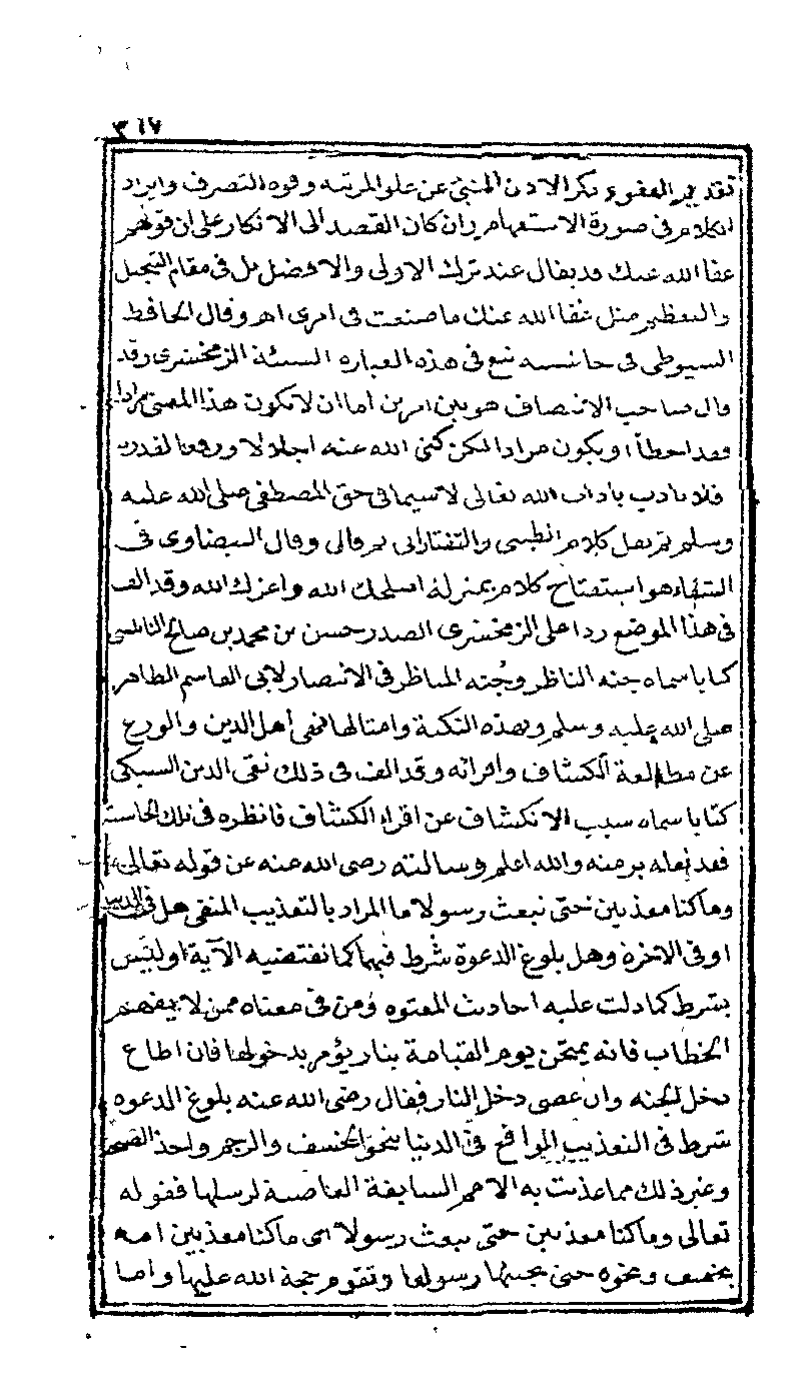 ٣٦٧
تقديم العفو وذكر الاذن المنبئ عن علو المرتبه وقوه التصرف وايراد
الكلام فى صورة الاستفهام وان كان القصد الى الانكار على ان قولهم
عفا الله عنك قد يقال عند ترك الاولى والافضل بل فى مقام التبجيل
والتعظيم مثل عفا الله عنك ما صنعت فى امرى اهـ وقال الحافظ
السيوطى فى حاشيته تبع فى هذه العباره السيئة الزمخشرى وقد
قال صاحب الانتصاف هو بين امرين اما ان لا يكون هذا المعنى مرادا
فقد اخطأ او يكون مرادا لكن كنى الله عنه اجلالا ورفعا لقدره
فلا تادب باداب الله تعالى لا سيما فى حق المصطفى صلى الله عليه
وسلم ثم نقل كلام الطيبى والتفتازانى ثم قال وقال البيضاوى فى
الشفاء هو استفتاح كلام بمنزلة اصلحك الله واعزك الله وقد الف
فى هذا الموضع ردا على الزمخشرى الصدر حسن بن محمد بن صالح النابلسى
كتابا سماه جنه الناظر وجنه المناظر فى الانتصار لابى القاسم الطاهر
صلى الله عليه وسلم وبهذه النكتة وامثالها نهى أهل الدين والورع
عن مطالعة الكشاف واقرائه وقد الف فى ذلك تقى الدين السبكى
كتابا سماه سبب الانكشاف عن اقراء الكشاف فانظره فى تلك الحاشية
فقد نقله برمته والله اعلم وسالته رضى الله عنه عن قوله تعالى
وما كنا معذبين حتى نبعث رسولا ما المراد بالتعذيب المنفى هل فى الدنيا
او فى الاخرة وهل بلوغ الدعوة شرط فيهما كما تقتضيه الآية او ليس
بشرط كما دلت عليه احاديث المعتوه ومن فى معناه ممن لا يفهم
الخطاب فانه يمتحن يوم القيامة بنار يؤمر بدخولها فان اطاع
دخل الجنه وان عصى دخل النار فقال رضى الله عنه بلوغ الدعوه
شرط فى التعذيب الواقع فى الدنيا بنحو الخسف والرجم واخذ الصيحة
وغير ذلك مما عذبت به الامم السابقة العاصية لرسلها فقوله
تعالى وما كنا معذبين حتى نبعث رسولا اى ما كنا معذبين امه
بخسف ونحوه حتى يجيئها رسولها وتقوم حجة الله عليها واما